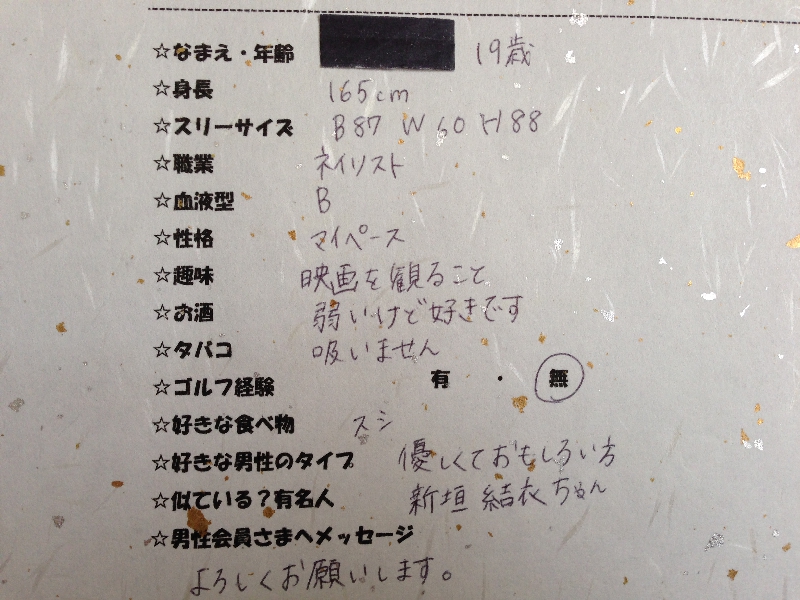 ☆なまえ・年齢 19歳
☆身長 165cm
☆スリーサイズ B87 W60 H88
☆職業 ネイリスト
☆血液型 B
☆性格 マイペース
☆趣味 映画を観ること
☆お酒 弱いけど好きです
☆タバコ 吸いません
☆ゴルフ経験 有 ・ 無
☆好きな食べ物 スシ
☆好きな男性のタイプ 優しくておもしろい方
☆似ている？有名人 新垣結衣ちゃん
☆男性会員さまへメッセージ
よろしくお願いします。